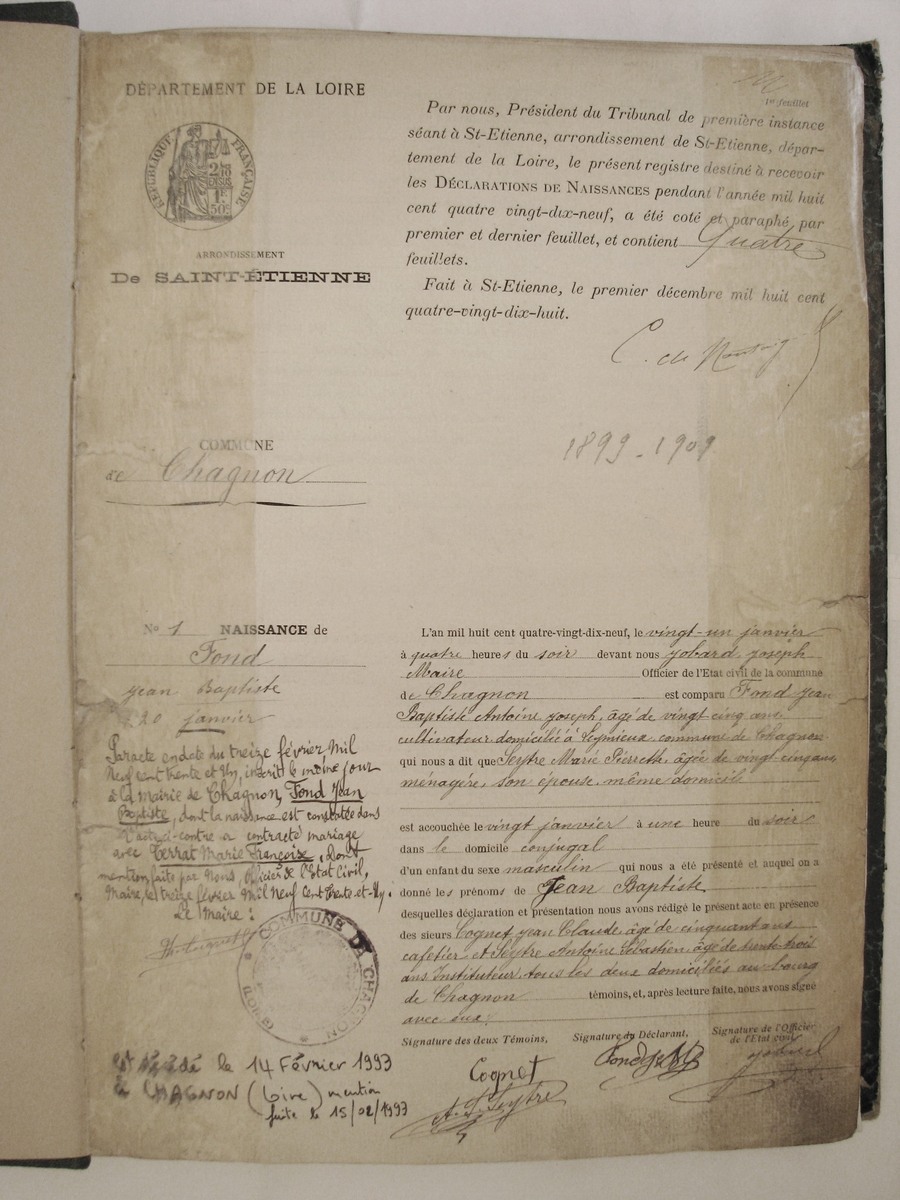 DÉPARTEMENT DE LA LOIRE
RÉPUBLIQUE FRANÇAISE
1F
50c
ARRONDISSEMENT
De SAINT-ÉTIENNE
1er feuillet
Par nous, Président du Tribunal de première instance
séant à St-Etienne, arrondissement de St-Etienne, dépar-
tement de la Loire, le présent registre destiné à recevoir
les DÉCLARATIONS DE NAISSANCES pendant l'année mil huit
cent quatre vingt-dix-neuf, a été coté et paraphé par
premier et dernier feuillet, et contient Quatre
feuillets.
Fait à St-Etienne, le premier décembre mil huit cent
quatre-vingt-dix-huit.
C. de
1899 - 1909
COMMUNE
de Chagnon
No 1 NAISSANCE de
Fond
Jean Baptiste
20 janvier
Par acte en date du treize février Mil
Neuf cent trente et Un, inscrit le même jour
à la mairie de Chagnon, Fond Jean
Baptiste, dont la naissance est constatée dans
l'acte ci-contre a contracté mariage
avec Terrat Marie Françoise, dont
mention faite par Nous, Officier de l'Etat Civil,
Maire, le treize février Mil Neuf Cent Trente et Un.
Le Maire :
COMMUNE DE CHAGNON
(LOIRE)
décédé le 14 Février 1993
à CHAGNON (Loire) mention
faite le 15/02/1993
L'an mil huit cent quatre-vingt-dix-neuf, le vingt-un janvier
à quatre heures du soir devant nous Jobard Joseph
Maire Officier de l'Etat civil de la commune
de Chagnon est comparu Fond Jean
Baptiste Antoine Joseph, âgé de vingt cinq ans
cultivateur domicilié à Leymieux commune de Chagnon
qui nous a dit que Seytre Marie Pierrette, âgée de vingt-cinq ans,
ménagère, son épouse, même domicile
est accouchée le vingt janvier à une heure du soir
dans le domicile conjugal
d'un enfant du sexe masculin qui nous a été présenté et auquel on a
donné les prénoms de Jean Baptiste
desquelles déclaration et présentation nous avons rédigé le présent acte en présence
des sieurs Cognet Jean Claude, âgé de cinquant ans
cafetier et Seytre Antoine Sébastien, âgé de trente-trois
ans Instituteur, tous les deux domiciliés au bourg
de Chagnon témoins, et, après lecture faite, nous avons signé
avec eux.
Signature des deux Témoins, Signature du Déclarant, Signature de l'Officier
de l'Etat civil
Cognet
A. S. Seytre
Fond J B
Jobard